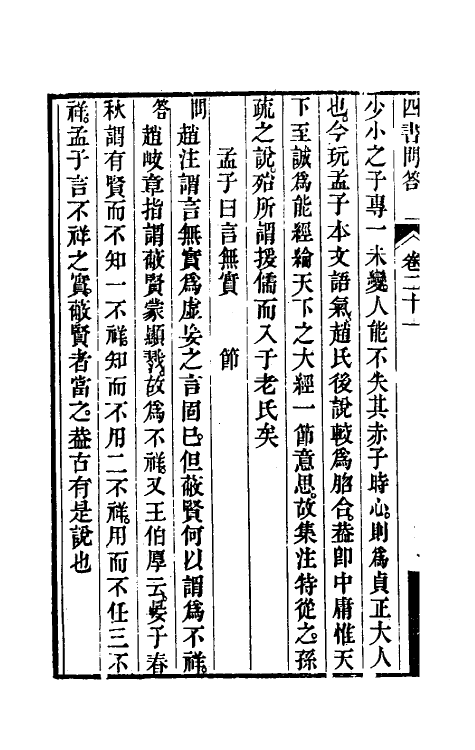 四書問答 卷二十一
少小之子專一未變人能不失其赤子時心則爲貞正大人
也今玩孟子本文語氣趙氏後說較爲脗合葢卽中庸惟天
下至誠爲能經綸天下之大經一節意思故集注特從之孫
疏之說殆所謂援儒而入于老氏矣
孟子曰言無實 節
問趙注謂言無實爲虛妄之言固已但蔽賢何以謂爲不祥
答趙岐章指謂蔽賢蒙顯戮故爲不祥又王伯厚云晏子春
秋謂有賢而不知一不祥知而不用二不祥用而不任三不
祥孟子言不祥之實蔽賢者當之葢古有是說也